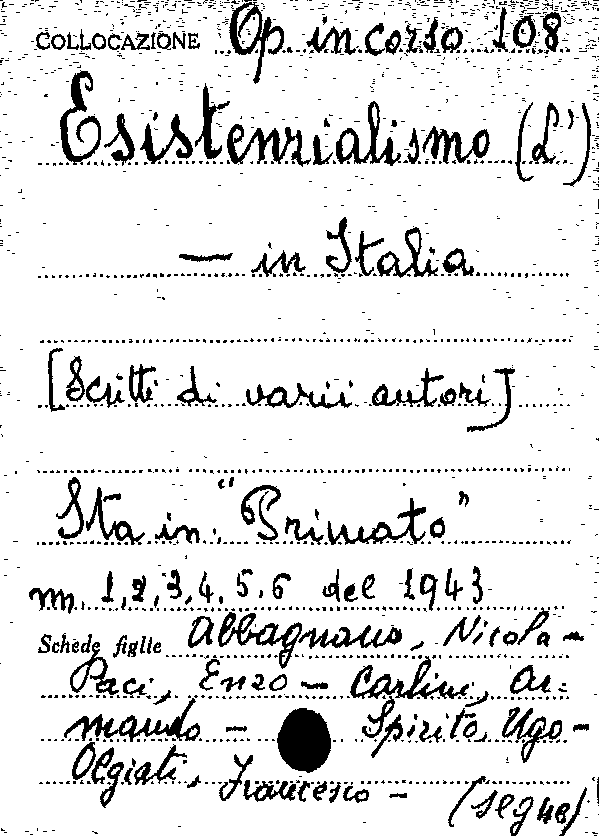 COLLOCAZIONE Op. in corso 108
Esistenzialismo (L')
— in Italia
[Scritti di varii autori]
Sta in: "Primato"
nn. 1,2,3,4,5,6 del 1943
Schede figlie Abbagnano, Nicola –
Paci, Enzo – Carlini, Ar=
mando – Spirito, Ugo –
Olgiati, Francesco – (segue)